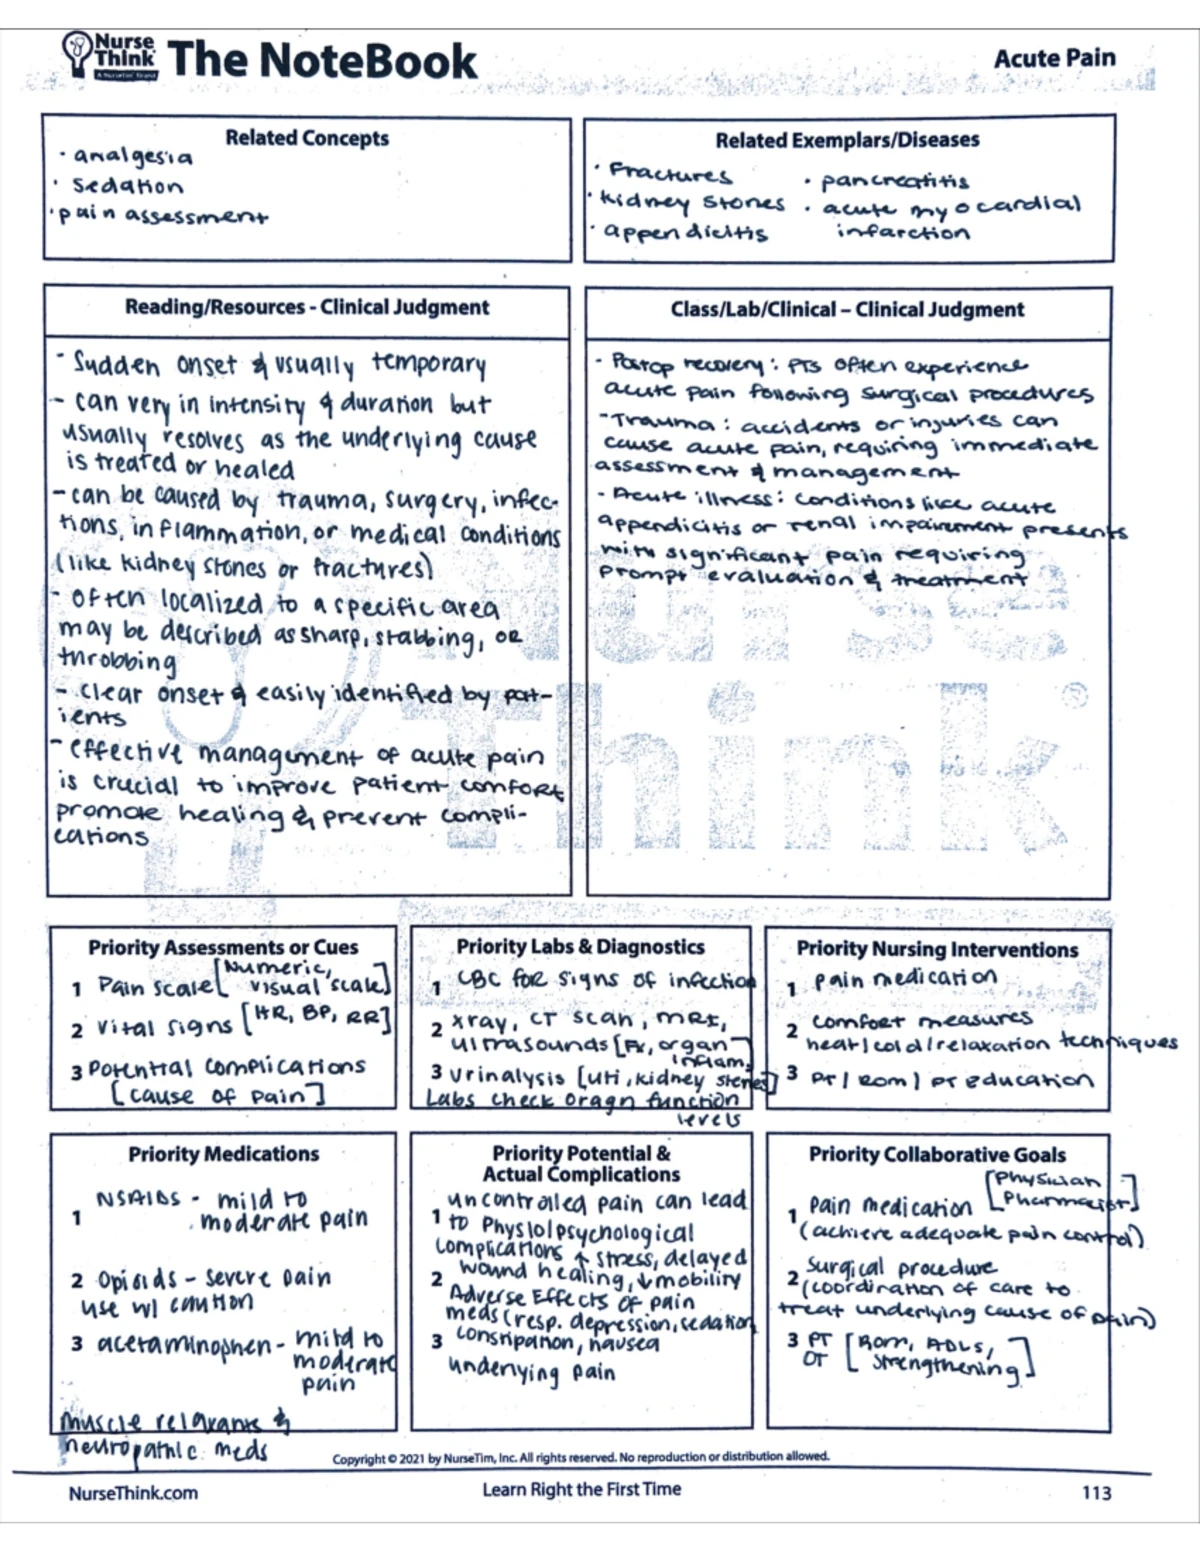 Nurse
Think
The NoteBook
Acute Pain
Related Concepts
· analgesia
· sedation
· pain assessment
Related Exemplars/Diseases
· Fractures
· kidney stones
· appendicitis
· pancreatitis
· acute myocardial
infarction
Reading/Resources - Clinical Judgment
- Sudden onset & usually temporary
- can very in intensity & duration but
usually resolves as the underlying cause
is treated or healed
- can be caused by trauma, surgery, infec-
tions, inflammation, or medical conditions
(like kidney stones or fractures)
- Often localized to a specific area
may be described as sharp, stabbing, or
throbbing
- clear onset & easily identified by pat-
ients
- effective management of acute pain
is crucial to improve patient comfort
promote healing & prevent compli-
cations
Class/Lab/Clinical – Clinical Judgment
- Postop recovery: PTs often experience
acute pain following surgical procedures
- Trauma: accidents or injuries can
cause acute pain, requiring immediate
assessment & management
- Acute illness: conditions like acute
appendicitis or renal impairment presents
with significant pain requiring
prompt evaluation & treatment
Nurse
Think
Priority Assessments or Cues
1 Pain scale [Numeric,
visual scale]
2 Vital signs [HR, BP, RR]
3 Potential complications
[cause of pain]
Priority Labs & Diagnostics
1 CBC for signs of infection
2 xray, CT scan, MRI,
ultrasounds [Fx, organ
inflam]
3 urinalysis [uti, kidney stones]
Labs check oragn function
levels
Priority Nursing Interventions
1 pain medication
2 comfort measures
heat/cold/relaxation techniques
3 PT/ROM/pt education
Priority Medications
1 NSAIDS - mild to
moderate pain
2 Opioids - severe pain
use w/ caution
3 acetaminophen - mild to
moderate
pain
muscle relaxants &
neuropathic meds
Priority Potential &
Actual Complications
uncontrolled pain can lead
1 to Physiol/psychological
complications ↑ stress, delayed
2 wound healing, ↓ mobility
Adverse Effects of pain
meds (resp. depression, sedation,
3 constipation, nausea
underlying pain
Priority Collaborative Goals
1 pain medication [Physician
Pharmacist]
(achieve adequate pain control)
2 surgical procedure
(coordination of care to
treat underlying cause of pain)
3 PT
OT [ROM, ADLs,
strengthening]
Copyright © 2021 by NurseTim, Inc. All rights reserved. No reproduction or distribution allowed.
NurseThink.com
Learn Right the First Time
113